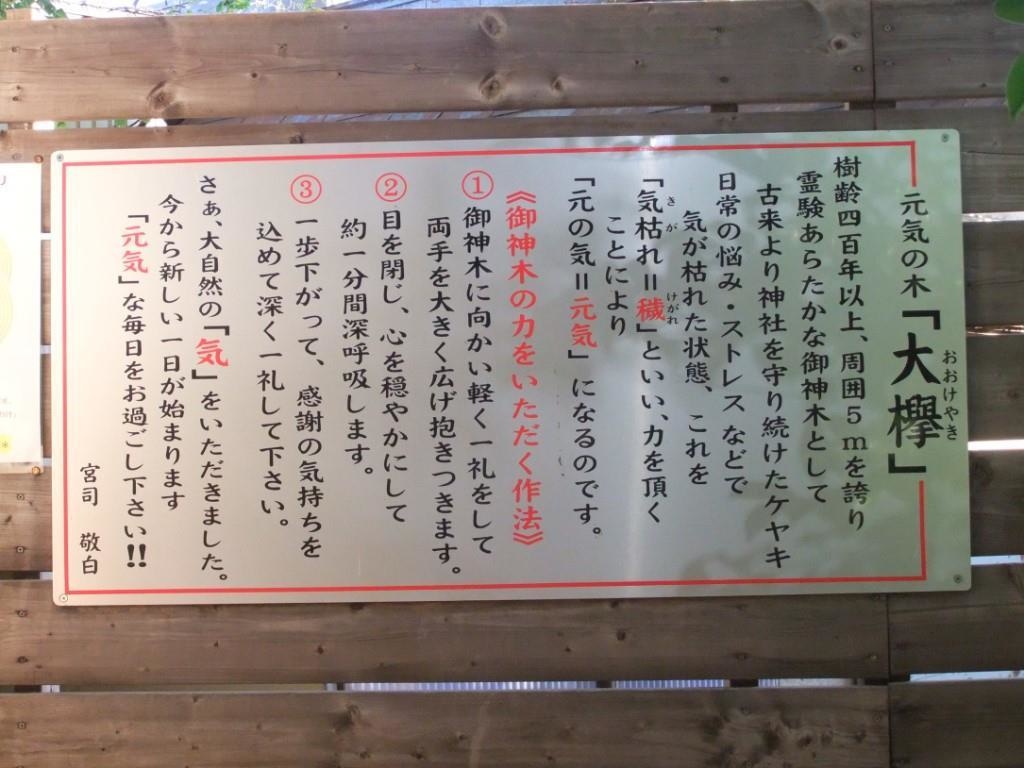 元気の木「大欅」
おおけやき
樹齢四百年以上、周囲5mを誇り
霊験あらたかな御神木として
古来より神社を守り続けたケヤキ
日常の悩み・ストレスなどで
気が枯れた状態、これを
「気枯れ=穢」といい、力を頂く
きが
けがれ
ことにより
「元の気=元気」になるのです。
《御神木の力をいただく作法》
①御神木に向かい軽く一礼をして
両手を大きく広げ抱きつきます。
②目を閉じ、心を穏やかにして
約一分間深呼吸します。
③一歩下がって、感謝の気持ちを
込めて深く一礼して下さい。
さぁ、大自然の「気」をいただきました。
今から新しい一日が始まります
「元気」な毎日をお過ごし下さい!!
宮司 敬白